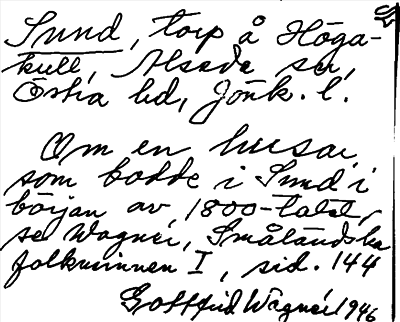 Sund, torp å Höga-
kull, Alseda sn,
Östra hd, Jönk. l.
Om en husar,
som bodde i Sund i
början av 1800-talet,
se Wagner, Småländska
folkminnen I, sid. 144
Gottfrid Wagnér 1946